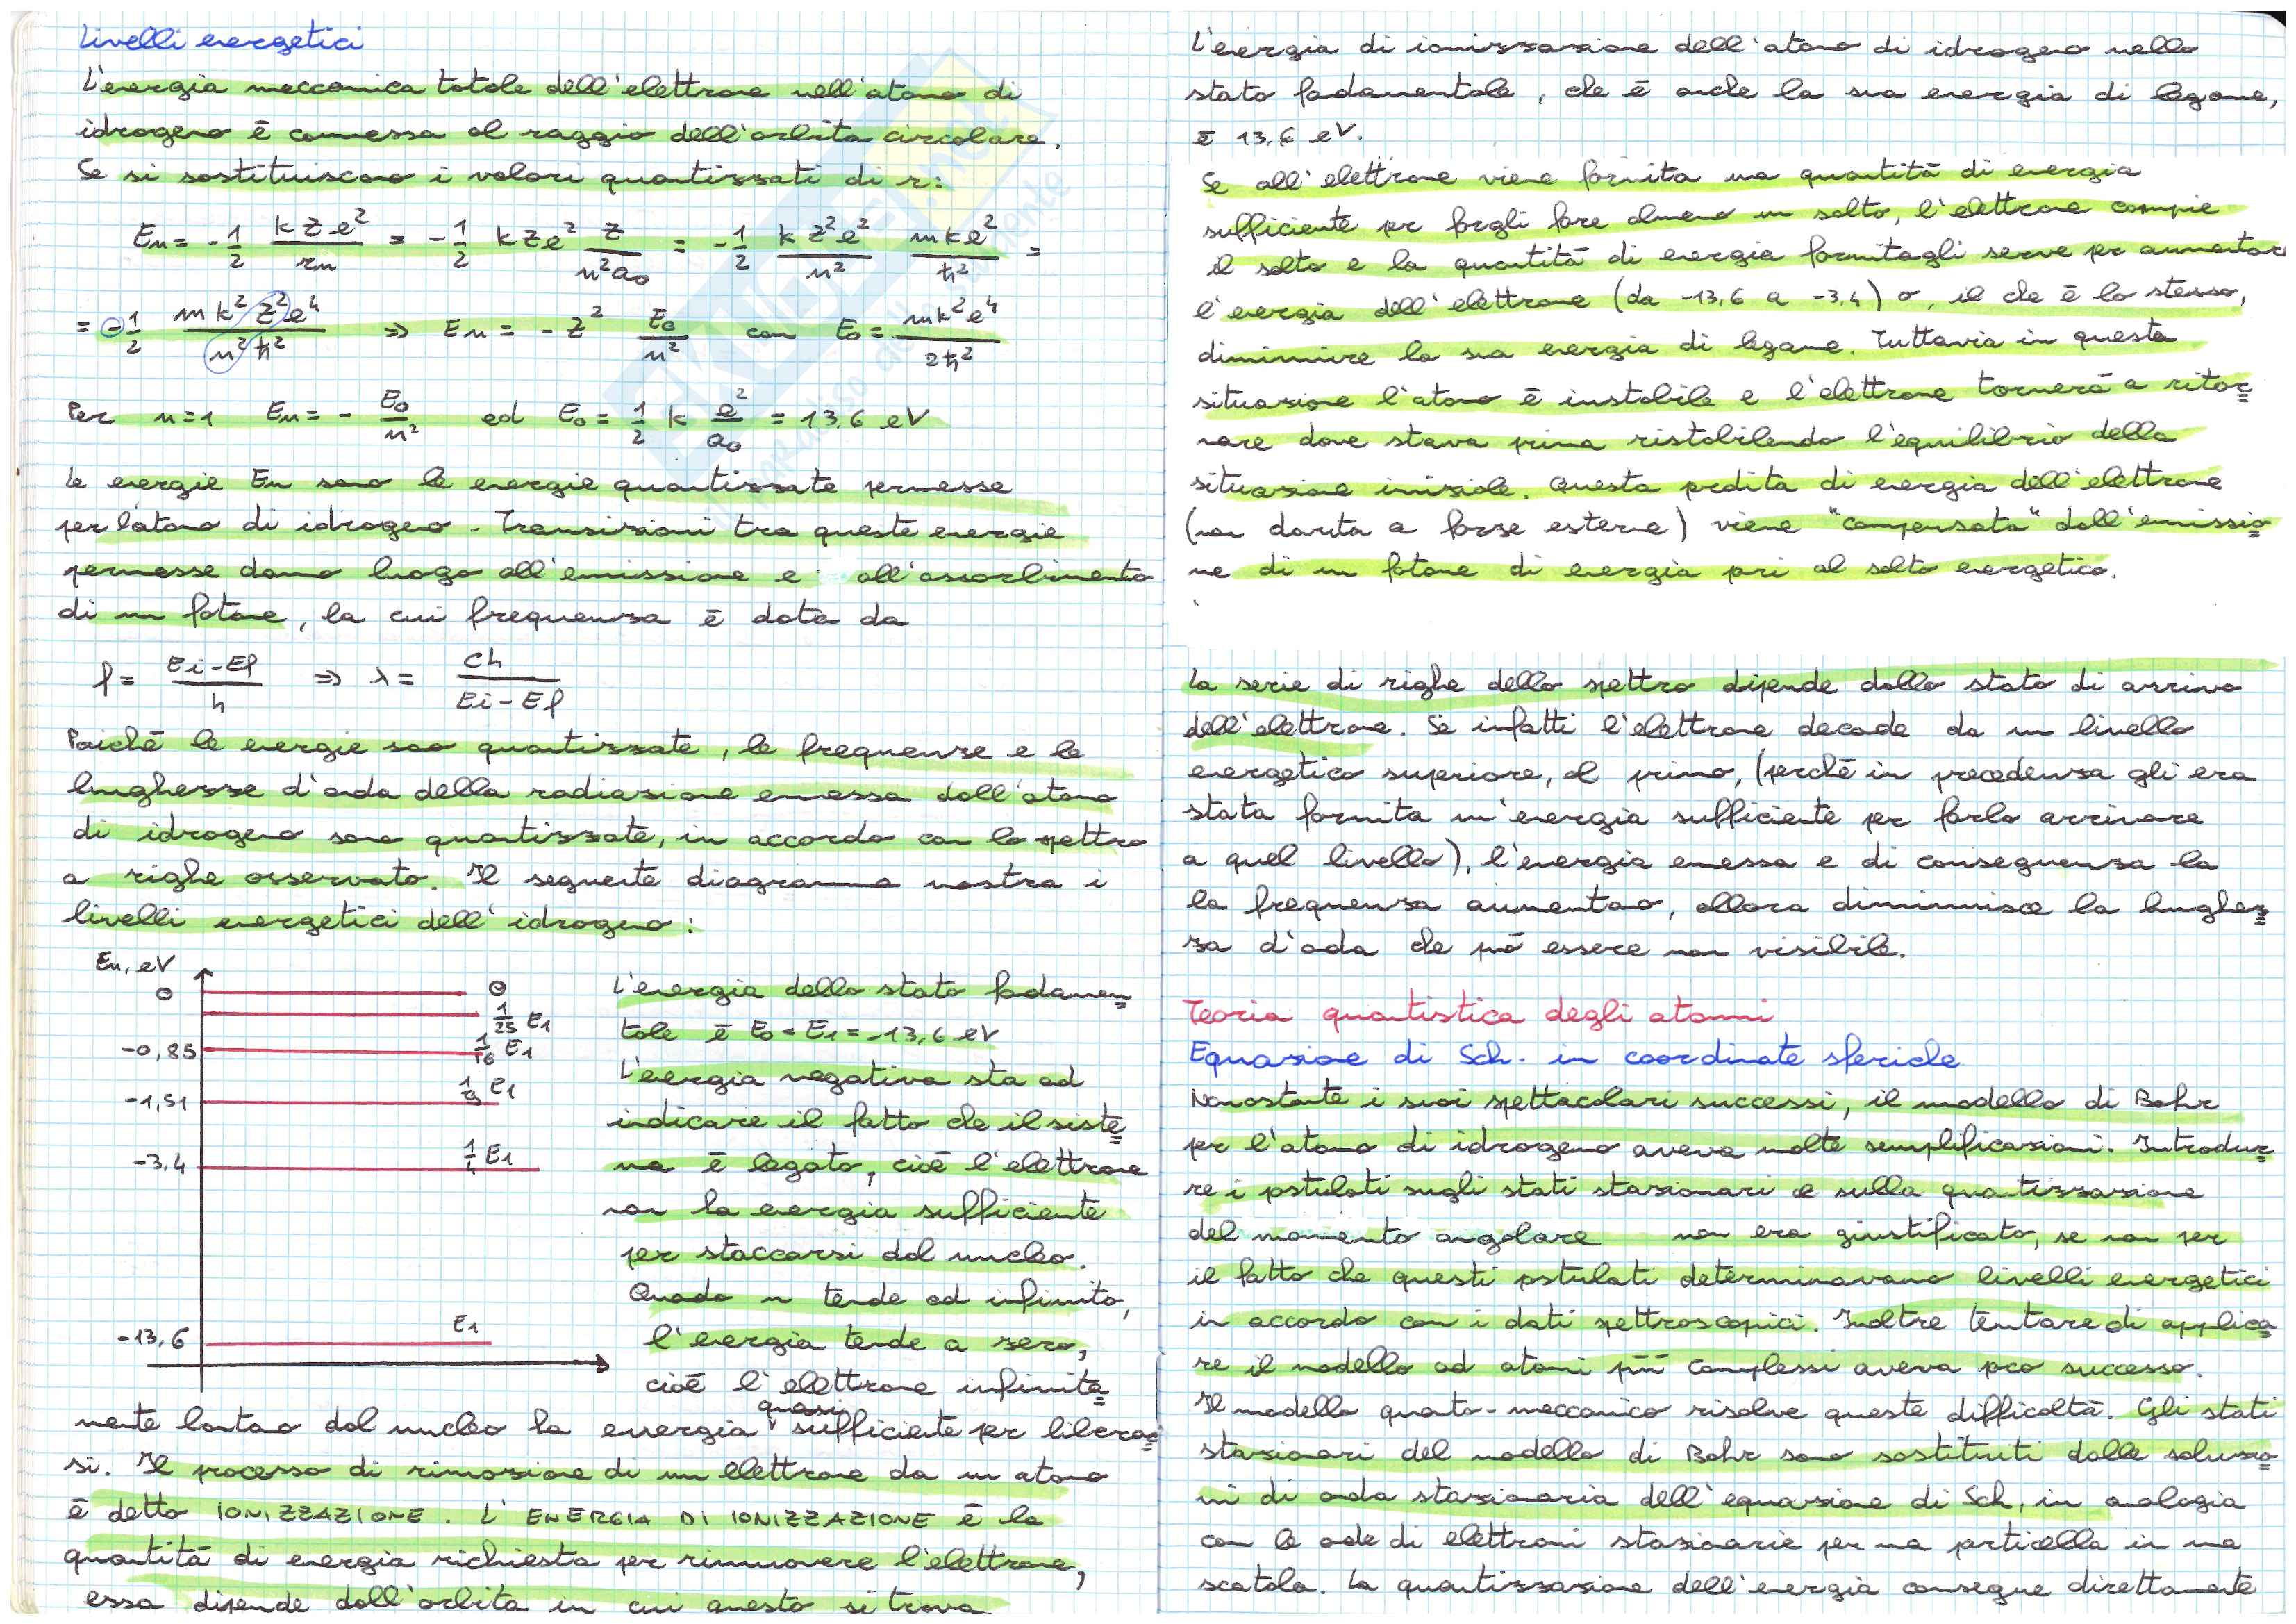 Livelli energetici
L'energia meccanica totale dell'elettrone nell'atomo di
idrogeno è connessa al raggio dell'orbita circolare.
Se si sostituiscono i valori quantizzati di r:
En = - 1/2 kZe²/rn = - 1/2 kZe² Z/n²a₀ = - 1/2 kZ²e²/n² mke²/ħ² =
= - 1/2 mk²Z²e⁴/n²ħ² ⇒ En = - Z² E₀/n² con E₀ = mk²e⁴/2ħ²
Per n=1 En = - E₀/n² ed E₀ = 1/2 k e²/a₀ = 13,6 eV
Le energie En sono le energie quantizzate permesse
per l'atomo di idrogeno. Transizioni tra queste energie
permesse danno luogo all'emissione e all'assorbimento
di un fotone, la cui frequenza è data da
f = Ei-Ef/h ⇒ λ = ch/Ei-Ef
Poiché le energie sono quantizzate, le frequenze e le
lunghezze d'onda della radiazione emessa dall'atomo
di idrogeno sono quantizzate, in accordo con lo spettro
a righe osservato. Il seguente diagramma mostra i
livelli energetici dell'idrogeno:
En, eV
0 0
1/25 E1
-0,85 1/16 E1
-1,51 1/9 E1
-3,4 1/4 E1
-13,6 E1
L'energia dello stato fondamen=
tale è E₀ = E1 = -13,6 eV
L'energia negativa sta ad
indicare il fatto che il siste=
ma è legato, cioè l'elettrone
non ha energia sufficiente
per staccarsi dal nucleo.
Quando n tende ad infinito,
l'energia tende a zero,
cioè l'elettrone infinita=
mente lontano dal nucleo ha energia quasi sufficiente per liberar=
si. Il processo di rimozione di un elettrone da un atomo
è detto IONIZZAZIONE. L'ENERGIA DI IONIZZAZIONE è la
quantità di energia richiesta per rimuovere l'elettrone,
essa dipende dall'orbita in cui questo si trova
L'energia di ionizzazione dell'atomo di idrogeno nello
stato fondamentale, che è anche la sua energia di legame,
è 13,6 eV.
Se all'elettrone viene fornita una quantità di energia
sufficiente per fargli fare almeno un salto, l'elettrone compie
il salto e la quantità di energia fornitagli serve per aumentar
l'energia dell'elettrone (da -13,6 a -3,4) o, il che è lo stesso,
diminuire la sua energia di legame. Tuttavia in questa
situazione l'atomo è instabile e l'elettrone tornerà a ritor=
nare dove stava prima ristabilendo l'equilibrio della
situazione iniziale. Questa perdita di energia dell'elettrone
(non dovuta a forze esterne) viene "compensata" dall'emissio=
ne di un fotone di energia pari al salto energetico.
La serie di righe dello spettro dipende dallo stato di arrivo
dell'elettrone. Se infatti l'elettrone decade da un livello
energetico superiore, al primo, (perché in precedenza gli era
stata fornita un'energia sufficiente per farlo arrivare
a quel livello), l'energia emessa e di conseguenza la
la frequenza aumentano, allora diminuisce la lunghez=
za d'onda che può essere non visibile.
Teoria quantistica degli atomi
Equazione di Sch. in coordinate sferiche
Nonostante i suoi spettacolari successi, il modello di Bohr
per l'atomo di idrogeno aveva molte semplificazioni. Introdur=
re i postulati sugli stati stazionari e sulla quantizzazione
del momento angolare non era giustificato, se non per
il fatto che questi postulati determinavano livelli energetici
in accordo con i dati spettroscopici. Inoltre tentare di applica=
re il modello ad atomi più complessi aveva poco successo.
Il modello quanto-meccanico risolve queste difficoltà. Gli stati
stazionari del modello di Bohr sono sostituiti dalle soluzio=
ni di onda stazionaria dell'equazione di Sch, in analogia
con le onde di elettroni stazionarie per una particella in una
scatola. La quantizzazione dell'energia consegue direttamente